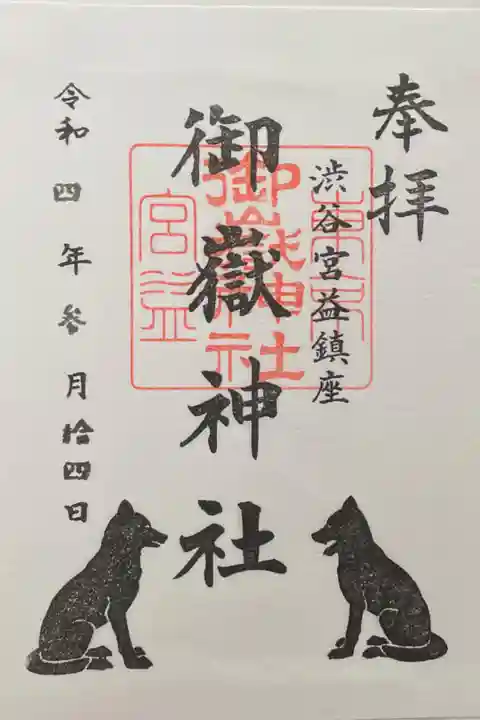 奉拝
渋谷宮益鎮座
東京
御嶽神社
宮益
御嶽神社
令和四年参月拾四日